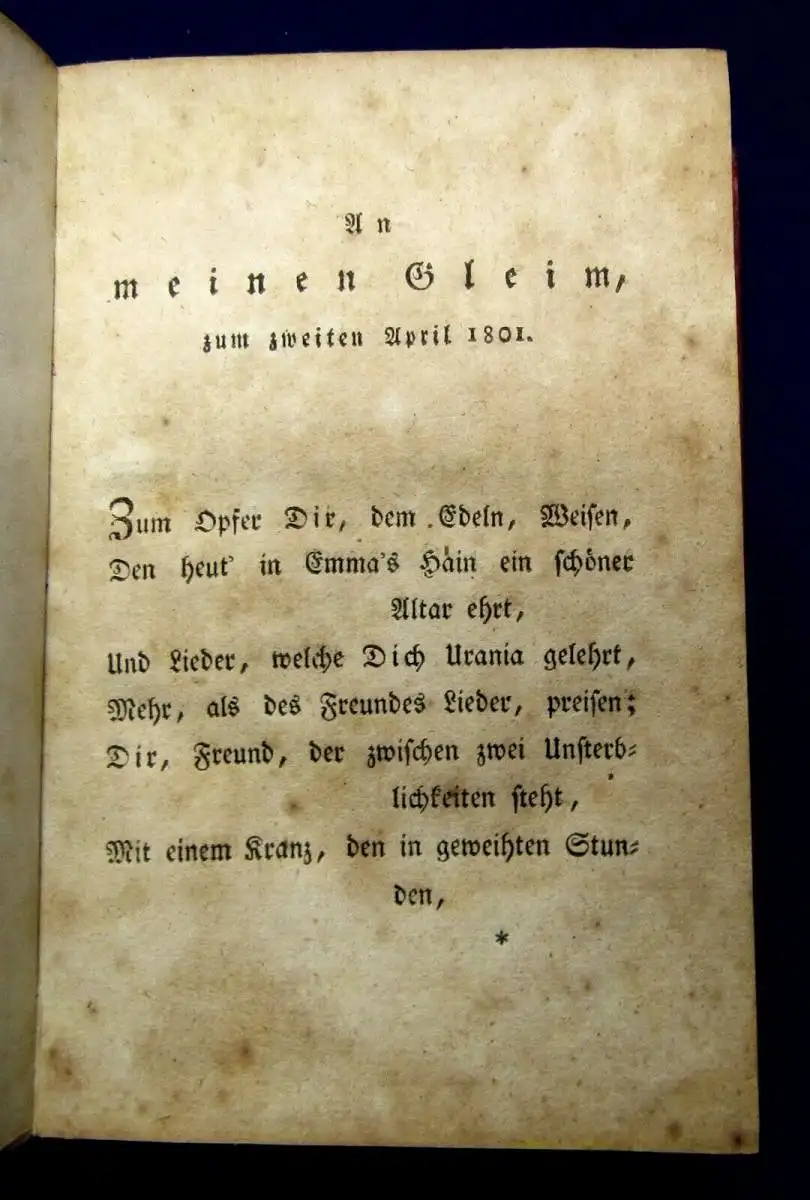 An
meinen Gleim,
zum zweiten April 1801.
Zum Opfer Dir, dem Edeln, Weiſen,
Den heut' in Emma's Håin ein ſchöner
Altar ehrt,
Und Lieder, welche Dich Urania gelehrt,
Mehr, als des Freundes Lieder, preiſen;
Dir, Freund, der zwiſchen zwei Unſterb⸗
lichkeiten ſteht,
Mit einem Kranz, den in geweihten Stun⸗
den,
*